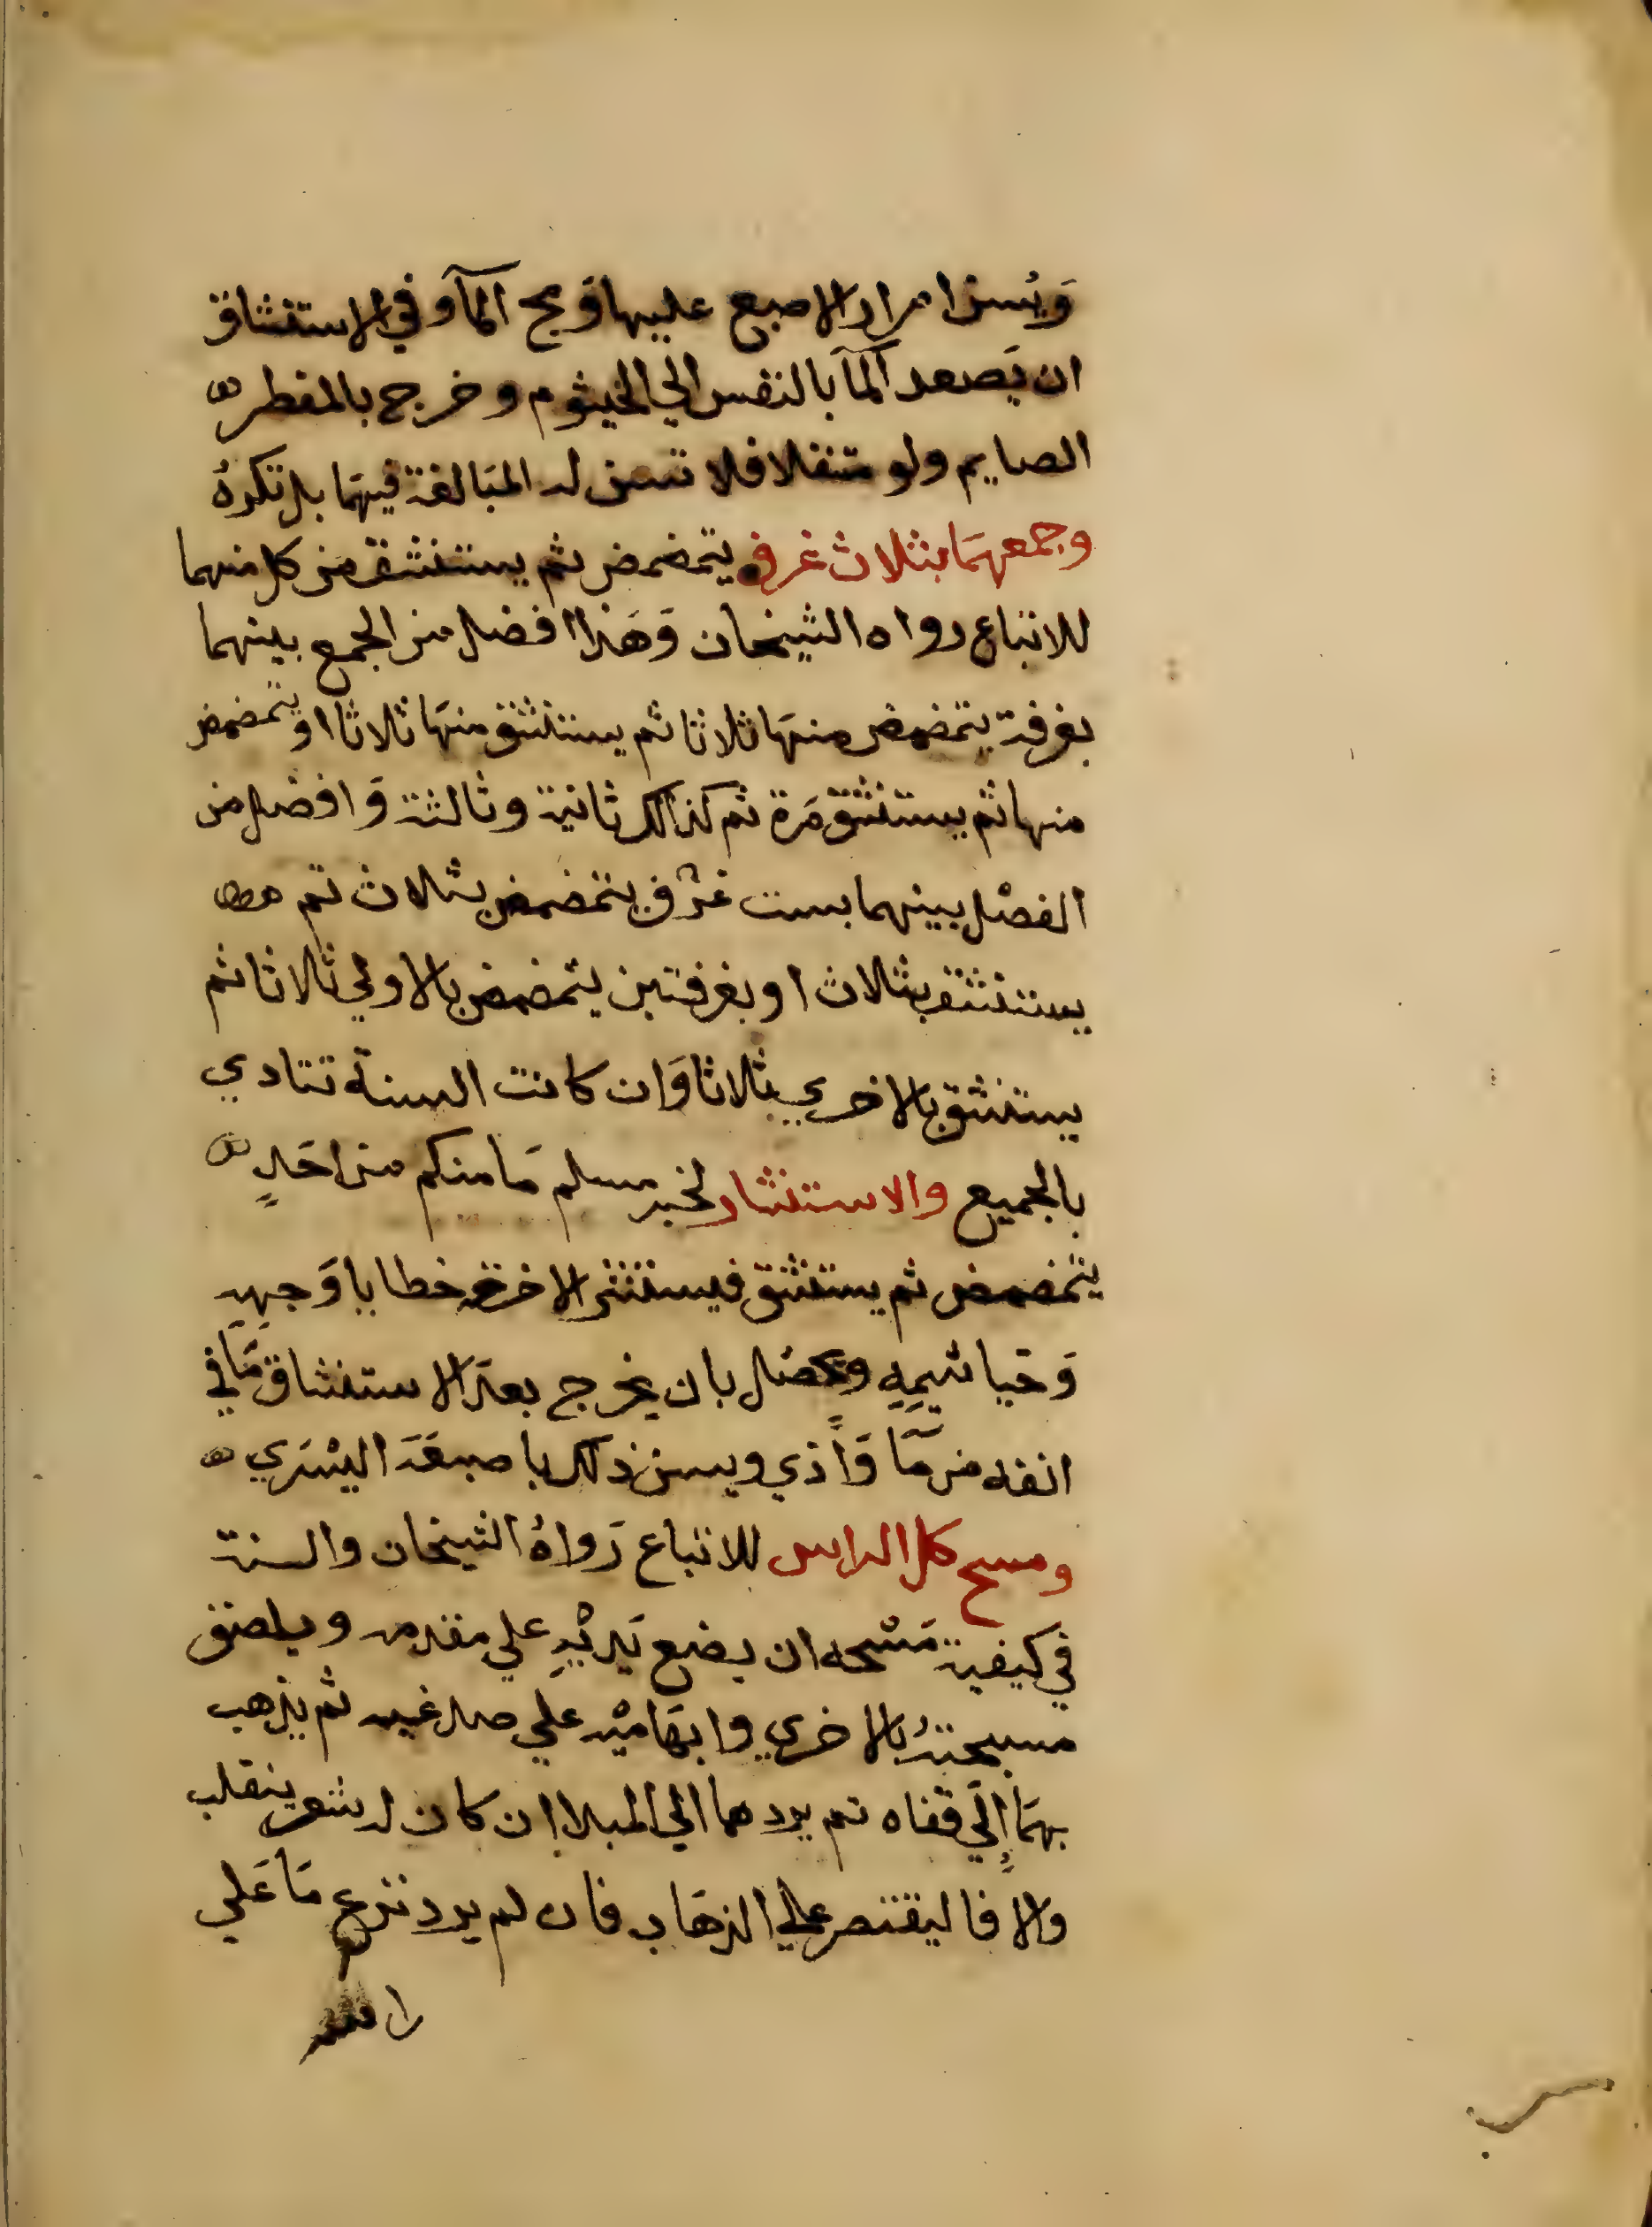 وَيُسن امرار الاصبع عليها وَمج المآ وفي الاستنشاق
ان يَصعد المآ بالنفس الي الخيثوم وخرج بالمفطر
الصايم ولو متنفلا فلا تسن له المبَالغة فيهَما بل تكرهُ
وجمعهمَا بثلاث غرف يتمضمض ثم يستنشق من كل منهما
للاتباع رواه الشيخان وَهَذا افضل من الجمع بينهما
بغرفة يتمضمض منهَا ثلاثا ثم يستنشق منهَا ثلاثا او يتمضمض
منها ثم يستنشق مَرة ثم كذالك ثانية وثالثة وَافضل من
الفصْل بينهما بست غرف يتمضمض بثلاث ثم
يستنشق بثلاث او بغرفتين يتمضمض بالاولي ثلاثا ثم
يستنشق بالاخري ثلاثا وَان كانت السنة تتادي
بالجميع والاستنثار لخبر مسلم مَا منكم من احَدٍ
يتمضمض ثم يستنشق فيستنثر الا خرت خطايا وَجهِهِ
وَخياشيمِهِ ويحصل بان يخرج بعدَ الاستنشاق مَا في
انفه من مَّا وَأذي ويسن ذلك باصبعَهَ اليسْرَي
ومسح كل الراس للاتباع رَواهُ الشيخان والسنة
في كيفية مَسْحه ان يضع يَديْهِ علي مقدمه ويلصق
مسبحتهُ بالاخري وابهَاميْه علي صدغيه ثم يذهب
بهمَا إلَي قفاه ثم يردهما الي المبدا ان كان له شعر ينقلب
والا فاليقتصر علي الذهَاب فان لم يرد نزع مَا عَلي
راسه